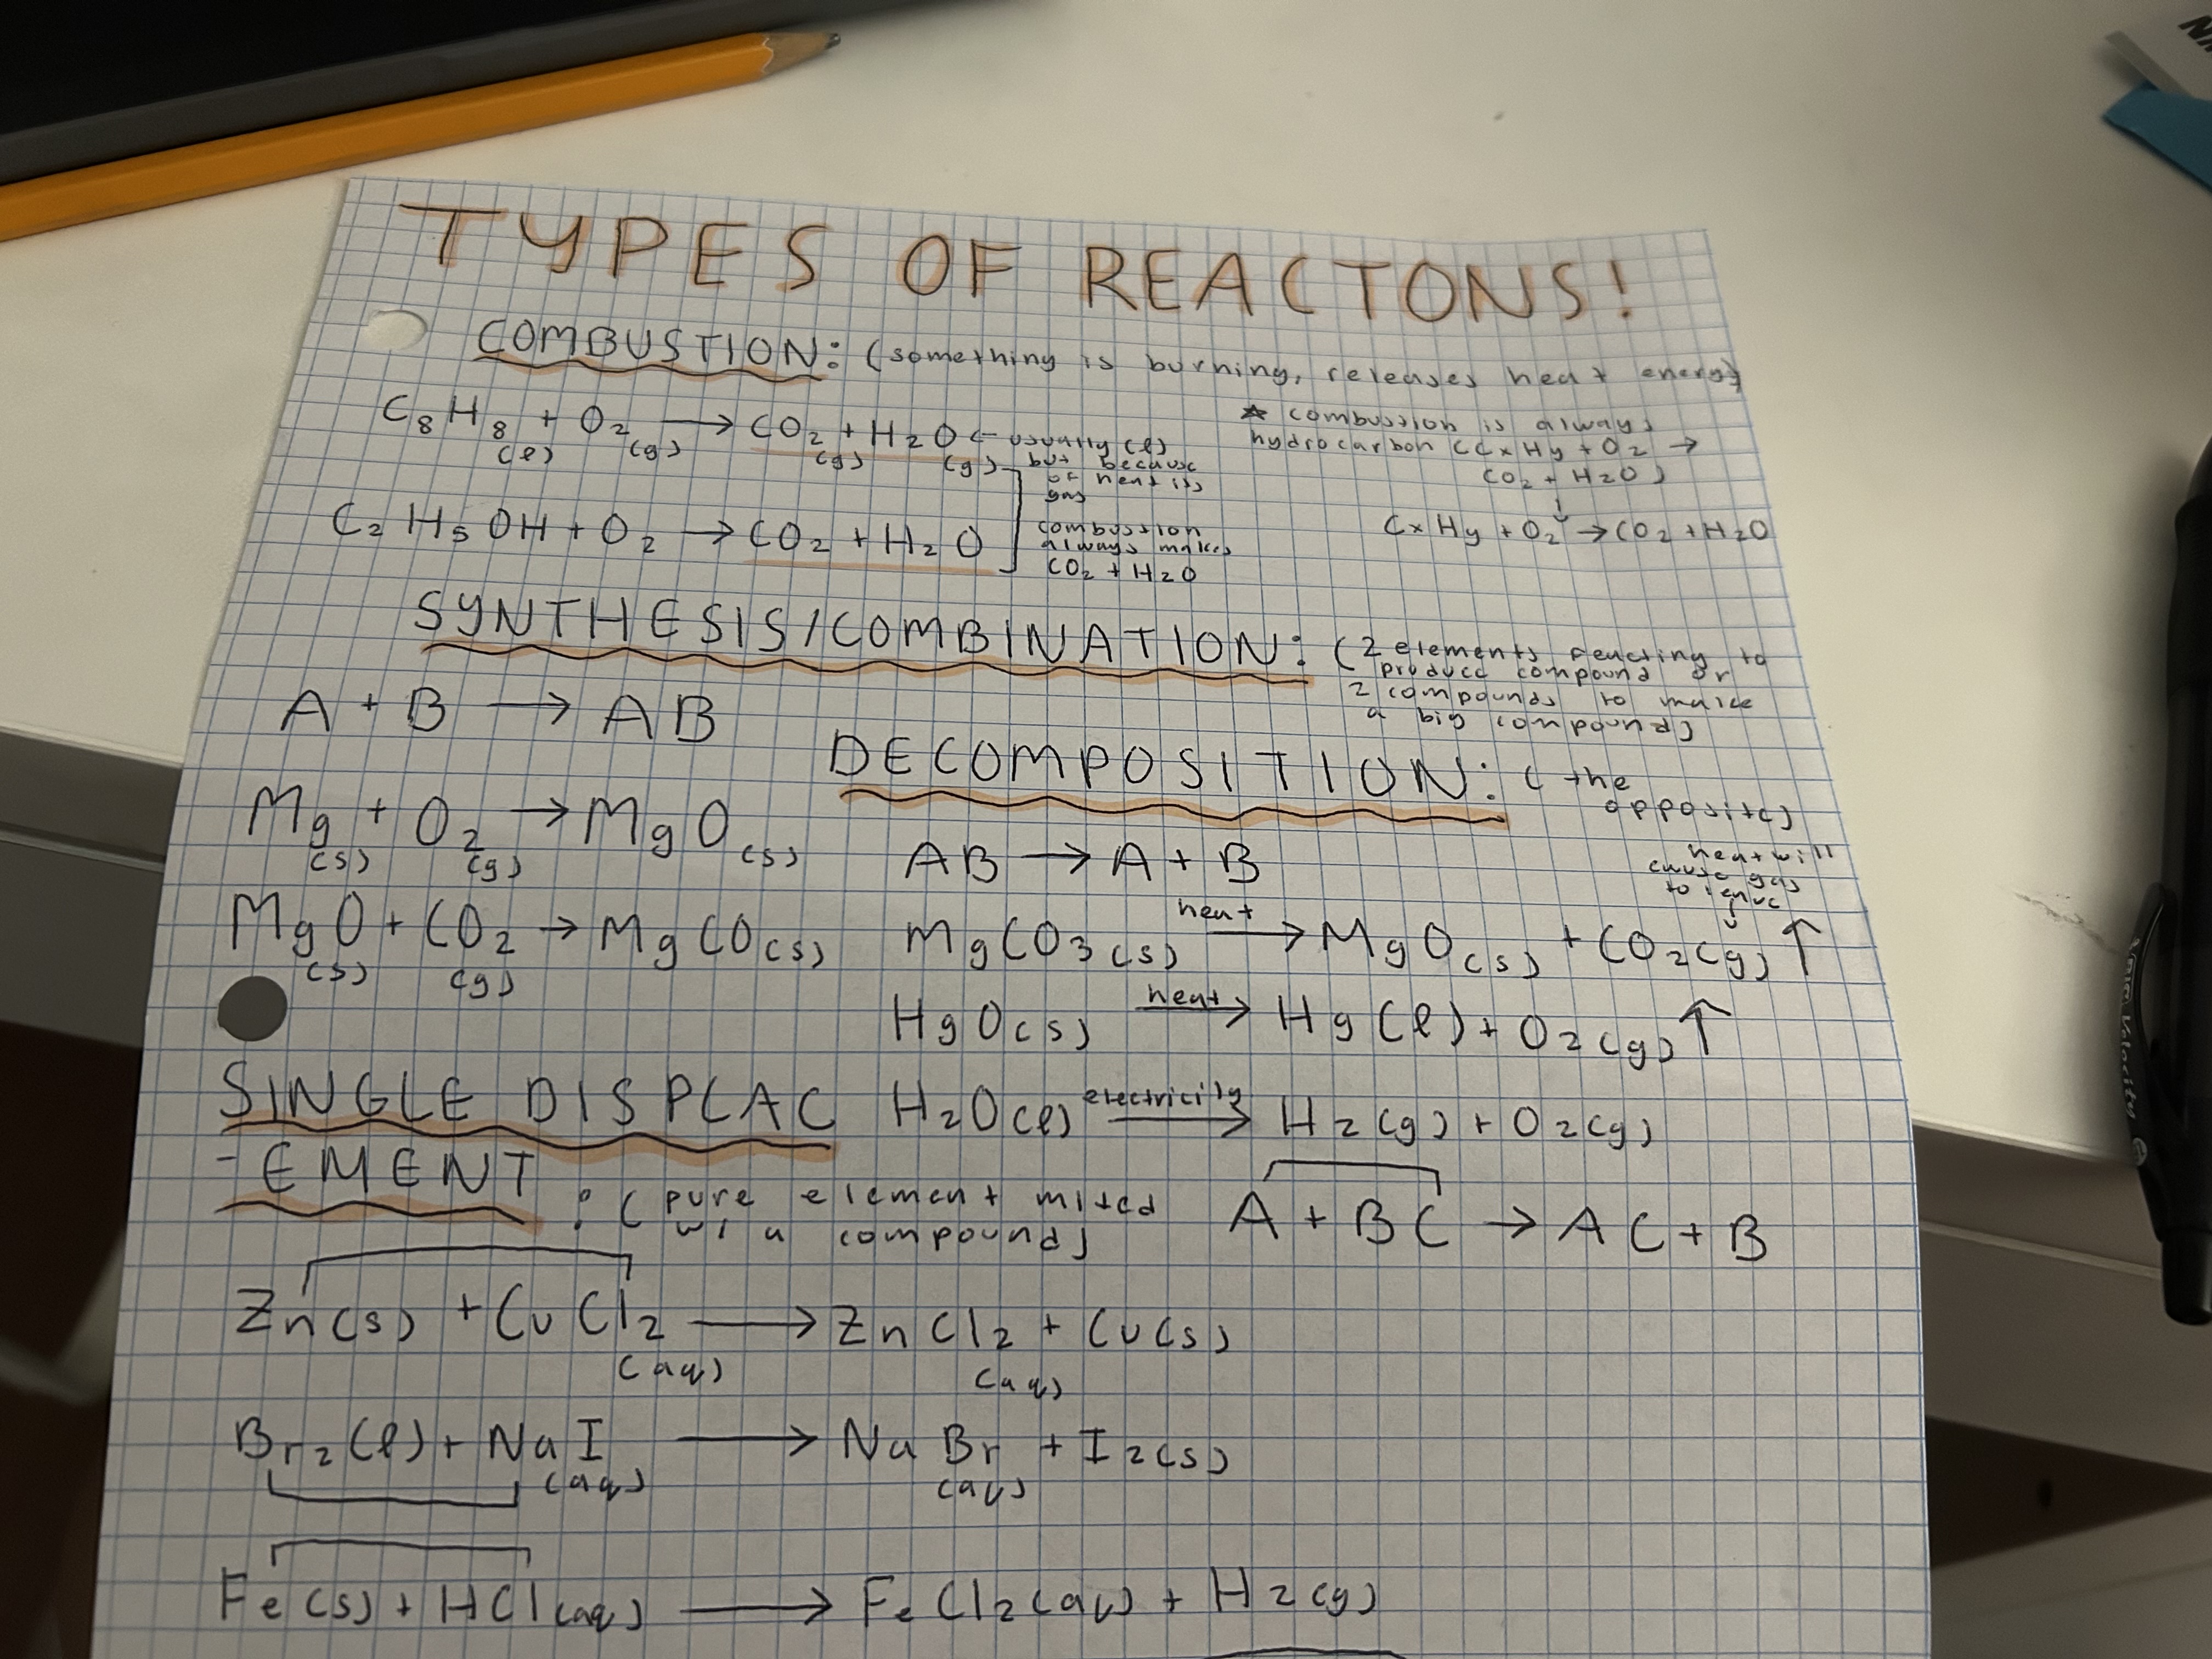 TYPES OF REACTONS!
COMBUSTION: (something is burning, releases heat energy)
C8H8(l) + O2(g) → CO2(g) + H2O(g) ← usually (l)
but because
of heat its
gas
* combustion is always
hydrocarbon (CxHy + O2 →
CO2 + H2O)
CxHy + O2 → CO2 + H2O
C2H5OH + O2 → CO2 + H2O
combustion
always makes
CO2 + H2O
SYNTHESIS/COMBINATION: (2 elements reacting to
produce compound or
2 compounds to make
a big compound)
A + B → AB
Mg(s) + O2(g) → MgO(s)
MgO(s) + CO2(g) → MgCO(s)
DECOMPOSITION: (the
opposite)
AB → A + B
heat will
cause gas
to leave
↓
MgCO3(s) heat → MgO(s) + CO2(g) ↑
HgO(s) heat → Hg(l) + O2(g) ↑
H2O(l) electricity → H2(g) + O2(g)
SINGLE DISPLAC
-EMENT : (pure element mixed
w/ a compound)
A + BC → AC + B
Zn(s) + CuCl2(aq) → ZnCl2(aq) + Cu(s)
Br2(l) + NaI(aq) → NaBr(aq) + I2(s)
Fe(s) + HCl(aq) → FeCl2(aq) + H2(g)
Velocity